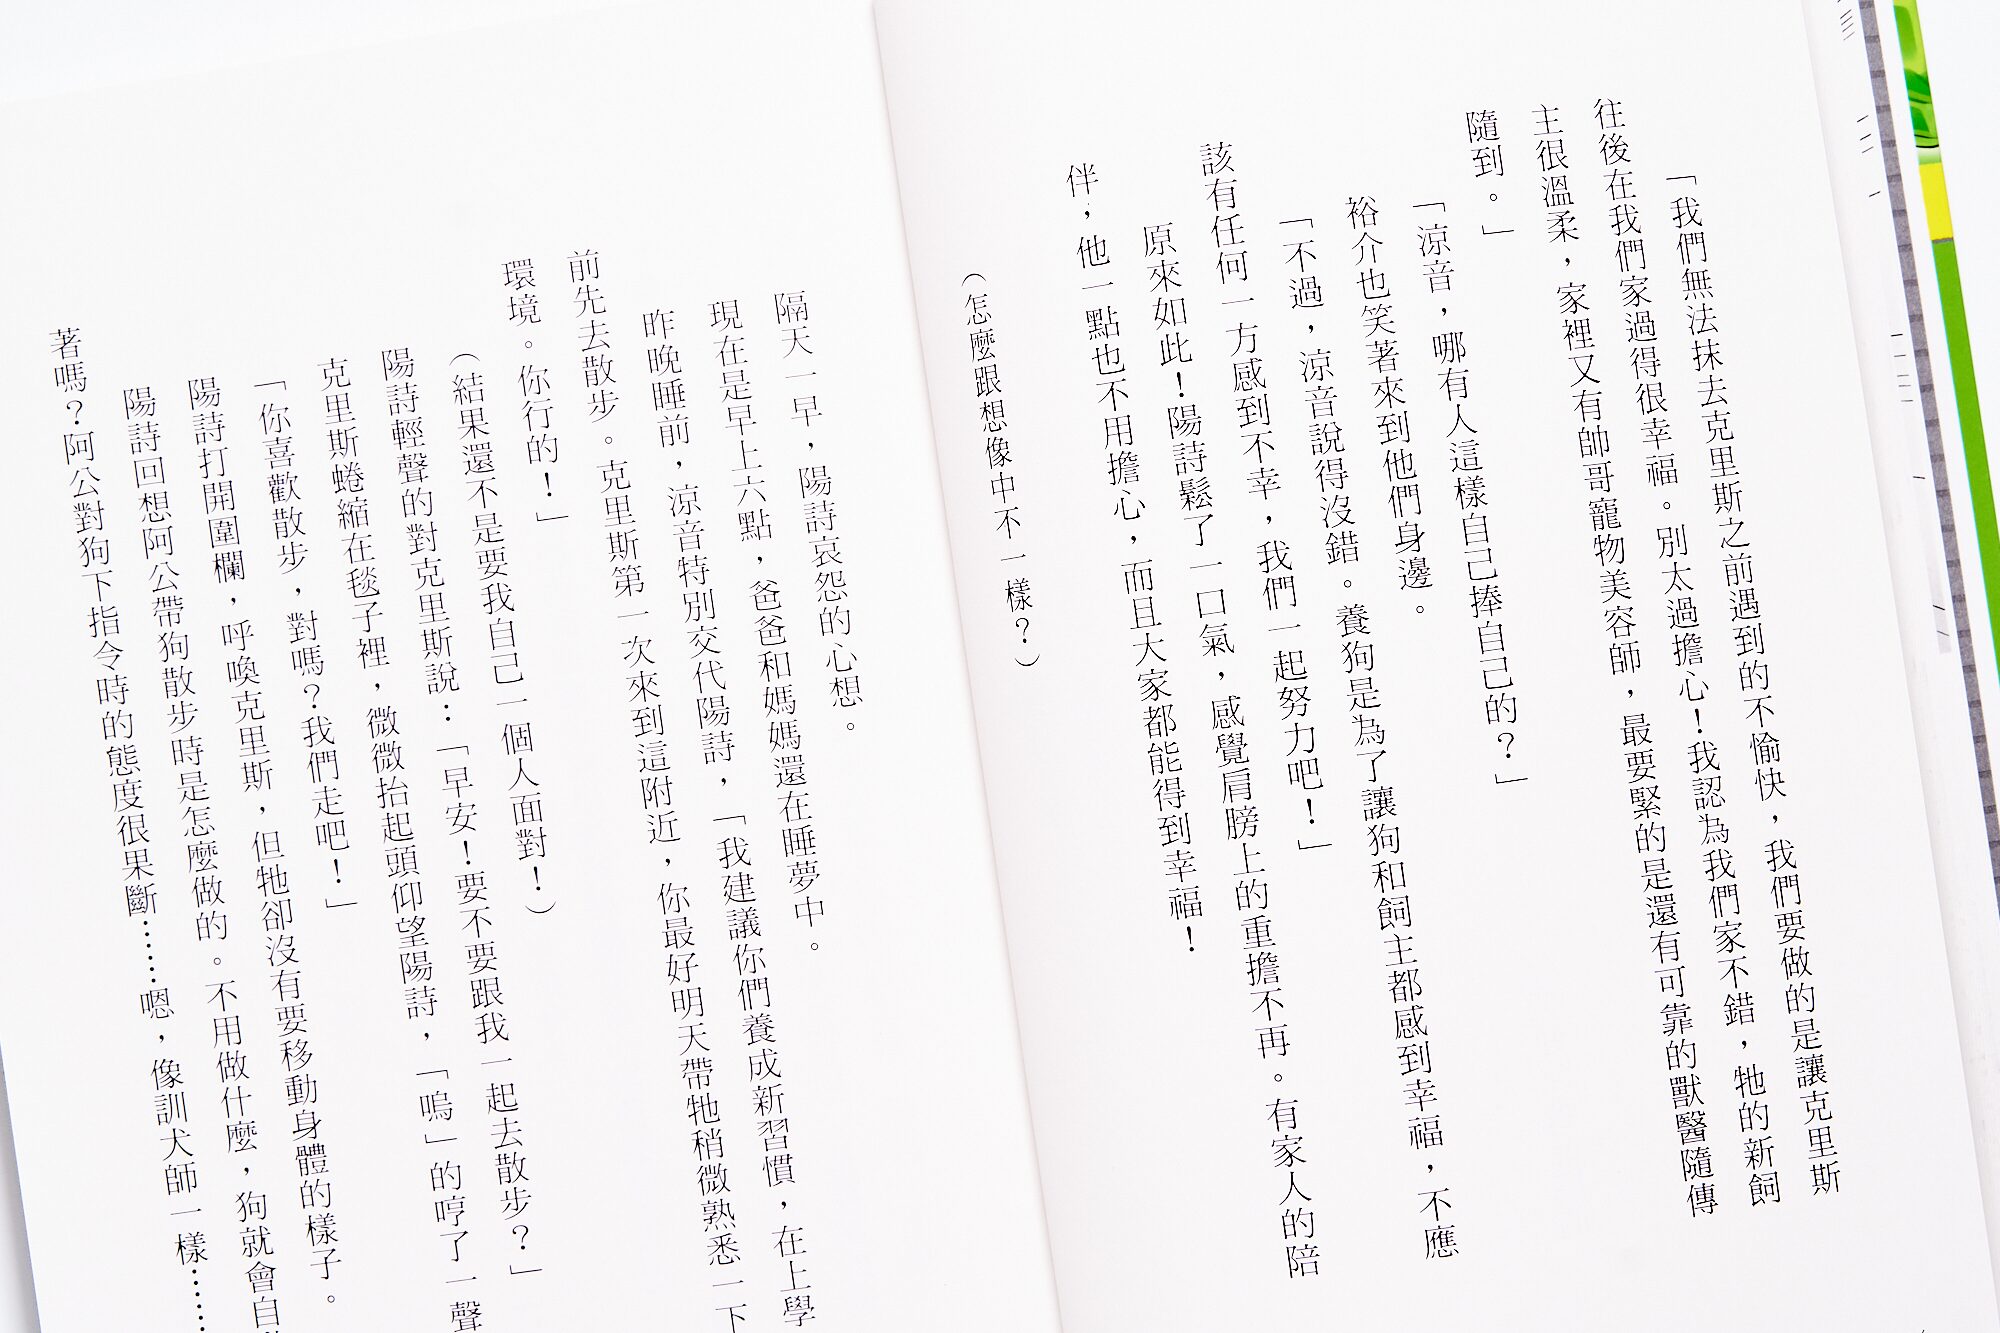 「我們無法抹去克里斯之前遇到的不愉快，我們要做的是讓克里斯
往後在我們家過得很幸福。別太過擔心！我認為我們家不錯，牠的新飼
主很溫柔，家裡又有帥哥寵物美容師，最要緊的是還有可靠的獸醫隨傳
隨到。」
「涼音，哪有人這樣自己捧自己的？」
裕介也笑著來到他們身邊。
「不過，涼音說得沒錯。養狗是為了讓狗和飼主都感到幸福，不應
該有任何一方感到不幸，我們一起努力吧！」
原來如此！陽詩鬆了一口氣，感覺肩膀上的重擔不再。有家人的陪
伴，他一點也不用擔心，而且大家都能得到幸福！
（怎麼跟想像中不一樣？）
隔天一早，陽詩哀怨的心想。
現在是早上六點，爸爸和媽媽還在睡夢中。
昨晚睡前，涼音特別交代陽詩，「我建議你們養成新習慣，在上學
前先去散步。克里斯第一次來到這附近，你最好明天帶牠稍微熟悉一下
環境。你行的！」
（結果還不是要我自己一個人面對！）
陽詩輕聲的對克里斯說：「早安！要不要跟我一起去散步？」
克里斯蜷縮在毯子裡，微微抬起頭仰望陽詩，「嗚」的哼了一聲
「你喜歡散步，對嗎？我們走吧！」
陽詩打開圍欄，呼喚克里斯，但牠卻沒有要移動身體的樣子。
陽詩回想阿公帶狗散步時是怎麼做的。不用做什麼，狗就會自
著嗎？阿公對狗下指令時的態度很果斷……嗯，像訓犬師一樣……